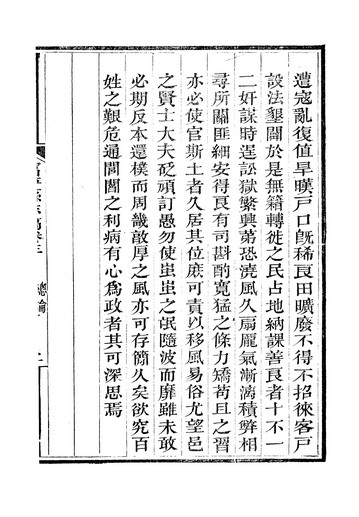 遭寇亂復值旱暵戶口旣稀良田曠廢不得不招徠客戶
設法墾闢於是無籍轉徙之民占地納課善良者十不一
二奸謀時逞訟獄繁興第恐澆風久扇龐氣漸漓積弊相
尋所關匪細安得良有司斟酌寬猛之條力矯苟且之習
亦必使官斯土者久居其位庶可責以移風易俗尤望邑
之賢士大夫砭頑訂愚勿使蚩蚩之氓隨波而靡雖未敢
必期反本還樸而周畿敵厚之風亦可存什一久矣欲究百
姓之艱危通閭閻之利病有心爲政者其可深思焉
總論